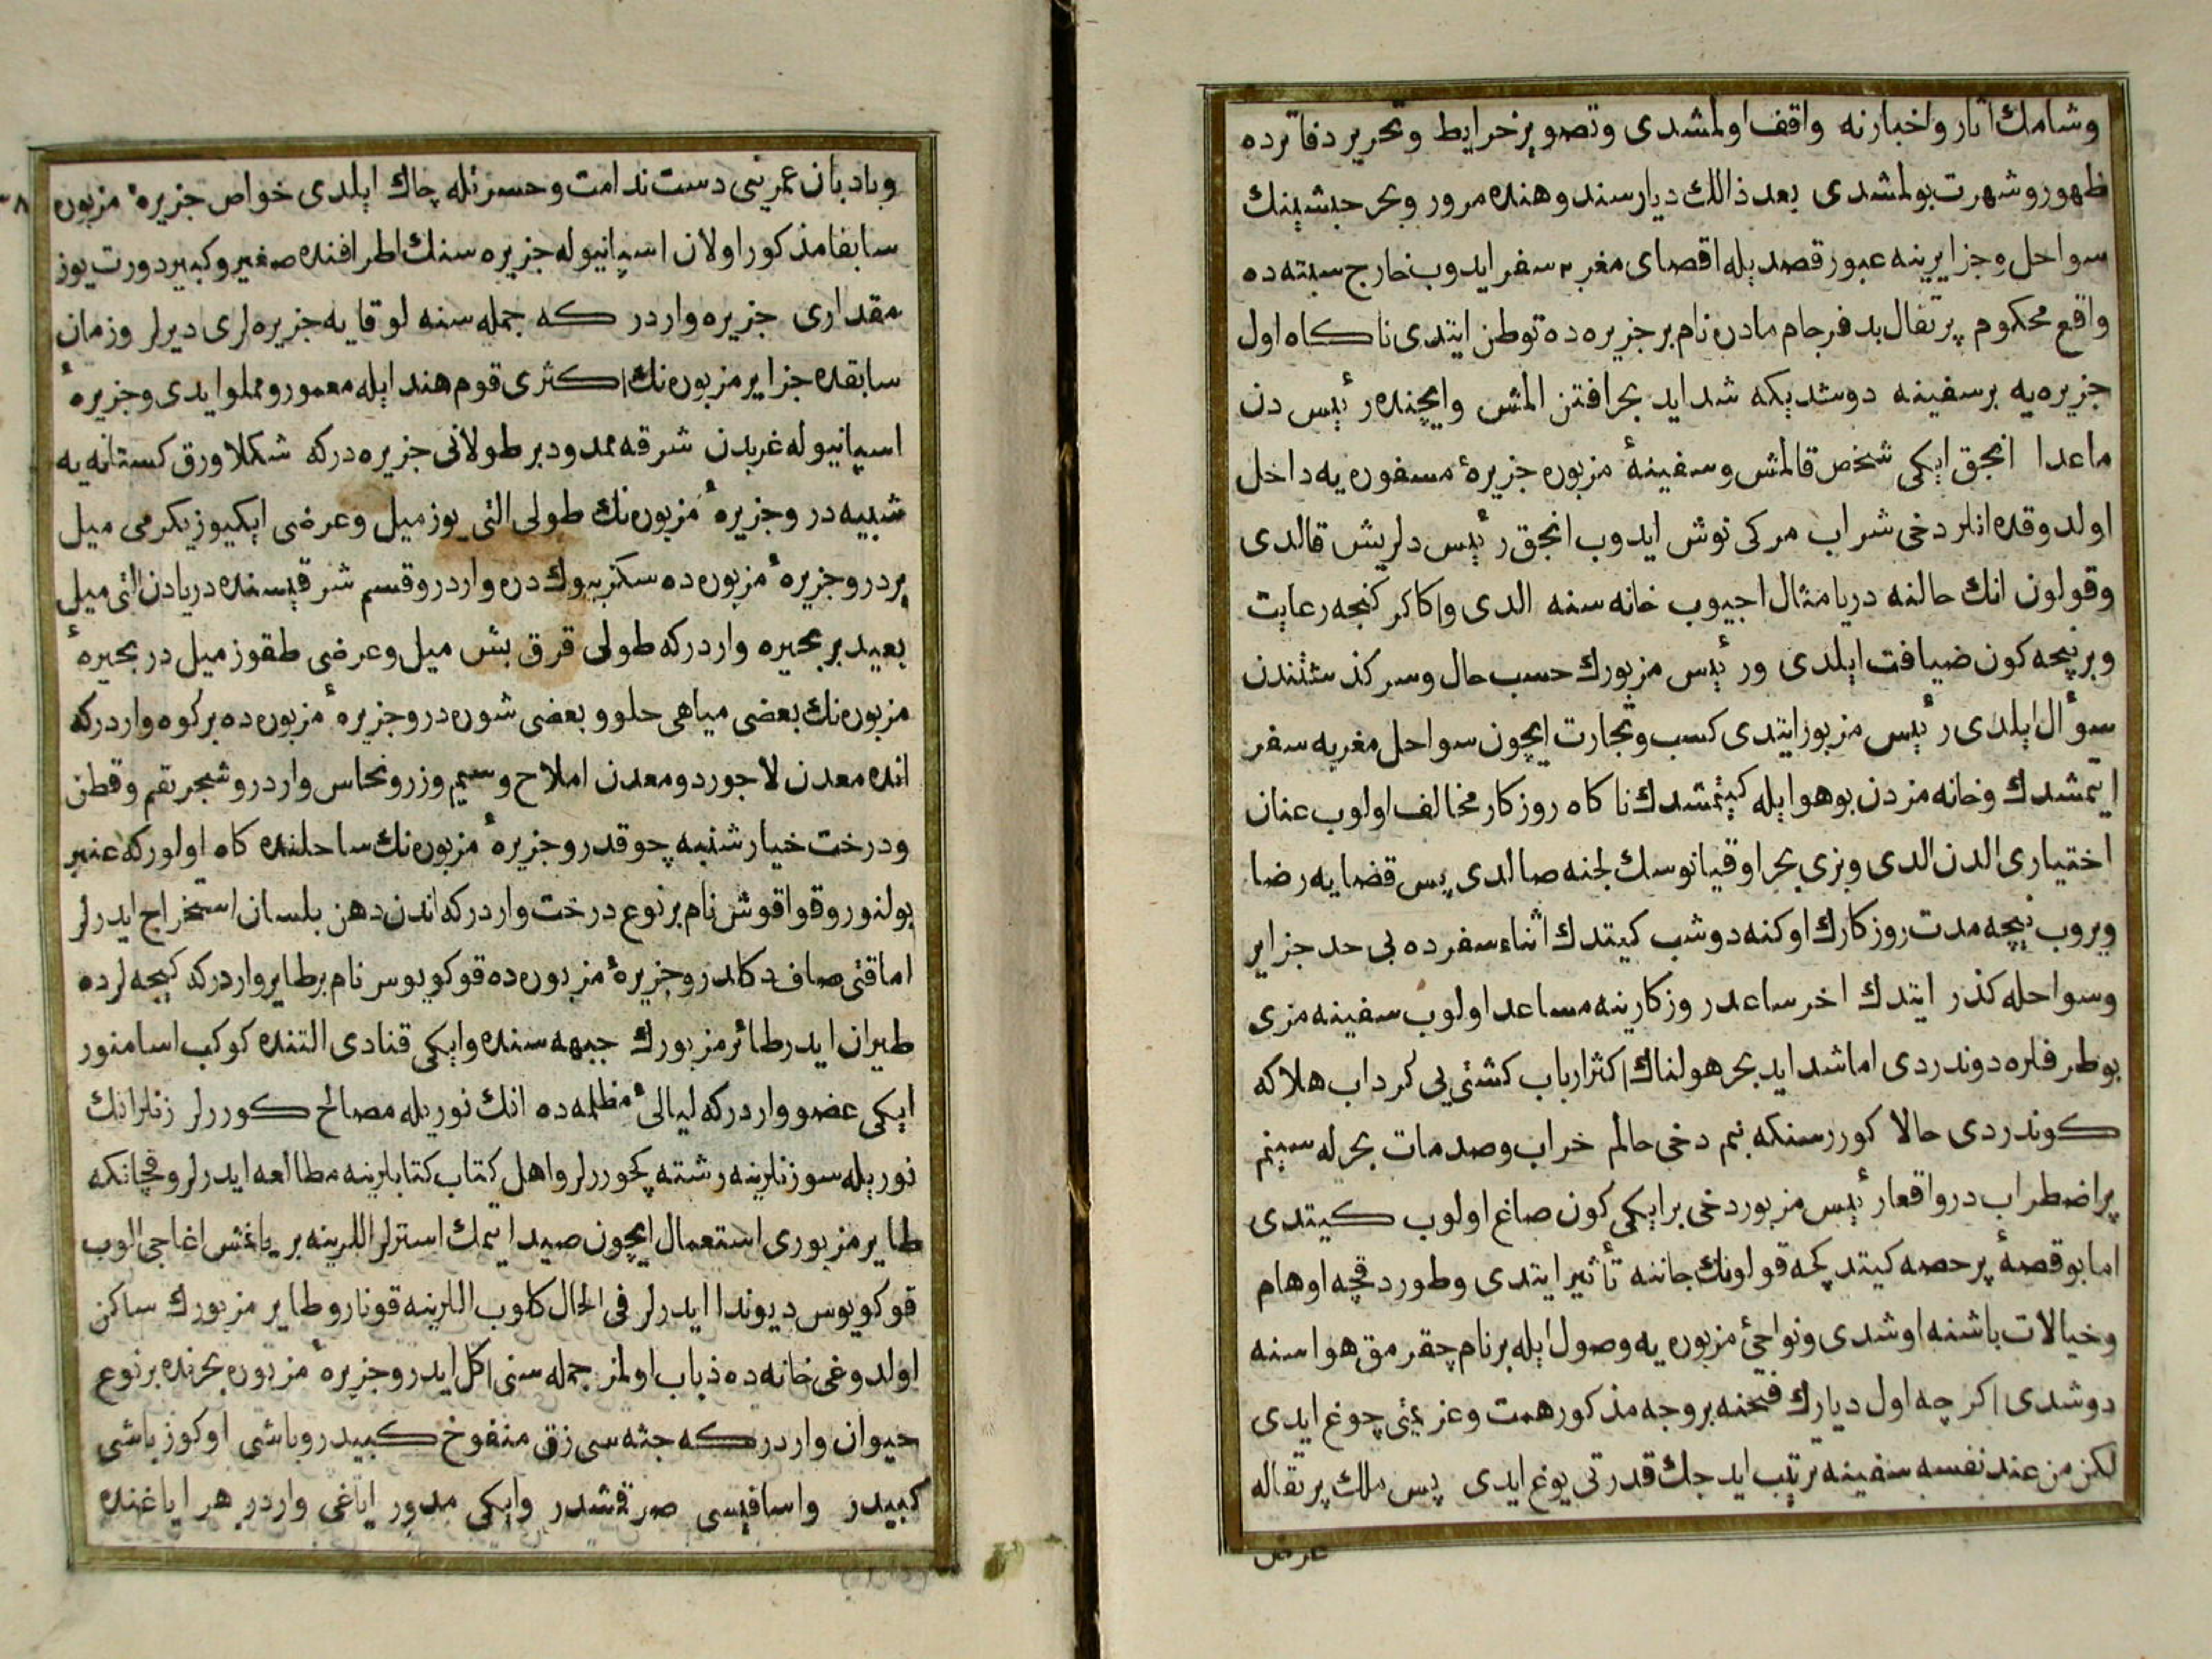 وشامك اثار واخبارنه واقف اولمشدى وتصوير خرايط وتحرير دفاترده
ظهور وشهرت بولمشدى بعد ذالك ديار سند وهنده مرور وبحر حبشينك
سواحل وجزايرينه عبور قصد يله اقصاى مغربه سفر ايدوب خارج سبته ده
واقع محكوم پرتقال بد فرجام مادره نام بر جزيره ده توطن ايتدى ناكاه اول
جزيره يه بر سفينه دوشديكه شدايد بحر افتن المش وايچنده رئيس دن
ماعدا انجق ايكى شخص قالمش وسفينۀ مزبوره جزيرۀ مسفوره يه داخل
اولدوقده انلر دخى شراب مركى نوش ايدوب انجق رئيس دلريش قالدى
وقولون انك حالنه دريا مثال اجيوب خانه سنه الدى واكا كركنجه رعايت
وبر نيچه كون ضيافت ايلدى ورئيس مزبورك حسب حال وسركذشتندن
سؤال ايلدى رئيس مزبور ايتدى كسب وتجارت ايچون سواحل مغربه سفر
ايتمشدك وخانه مزدن بو هوا يله كيتمشدك ناكاه روزكار مخالف اولوب عنان
اختيارى الدن الدى وبزى بحر اوقيانوسك لجنه صالدى پس قضايه رضا
ويروب نيچه مدت روزكارك اوكنه دوشب كيتدك اثناء سفرده بى حد جزاير
وسواحله كذر ايتدك اخر ساعد روزكار ينه مساعد اولوب سفينه مزى
بو طرفلره دوندردى اما شدايد بحر هولناك اكثر ارباب كشتئ يى كرداب هلاكه
كوندردى حالا كوررسنكه بنم دخى حالم خراب وصدمات بحرله سينم
پر اضطراب در واقعا رئيس مزبور دخى بر ايكى كون صاغ اولوب كيتدى
اما بو قصۀ پر حصه كيتدكجه قولونك جاننه تأثير ايتدى وطوردقچه اوهام
وخيالات باشنه اوشدى ونواحئ مزبوره يه وصول ايله بر نام چقرمق هواسنه
دوشدى اكرچه اول ديارك فتحنه بر وجه مذكور همت وعزيمتى چوغ ايدى
لكن من عند نفسه سفينه ترتيب ايدجك قدرتى يوغ ايدى پس ملك پرتقاله
عرض
وبادبان عمرينى دست ندامت وحسرتله چاك ايلدى خواص جزيرۀ مزبوره
سابقا مذكور اولان اسپانيوله جزيره سنك اطرافنده صغير وكبير دورت يوز
مقدارى جزيره واردر كه جمله سنه لوقايه جزيره لرى ديرلر وزمان
سابقده جزاير مزبوره نك اكثرى قوم هند ايله معمور ومملو ايدى وجزيرۀ
اسپانيوله غربدن شرقه ممدود بر طولانى جزيره دركه شكلا ورق كستانه يه
شبيه در وجزيرۀ مزبوره نك طولى التى يوز ميل وعرضى ايكيوز يكرمى ميل
يردر وجزيرۀ مزبوره ده سكز بيوك دره واردر وقسم شرقيسنده دريادن التى ميل
بعيد بر بحيره واردركه طولى قرق بش ميل وعرضى طقوز ميل در بحيرۀ
مزبوره نك بعضى مياهى حلو وبعضى شوره در وجزيرۀ مزبوره ده بر كوه واردركه
انده معدن لاجورد ومعدن املاح وسيم وزر ونحاس واردر وشجر بقم وقطن
ودرخت خيارشنبه چوقدر وجزيرۀ مزبوره نك ساحلنده كاه اولور كه عنبر
بولنور وقواقوش نام بر نوع درخت واردركه اندن دهن بلسان استخراج ايدرلر
اما قتى صاف دكلدر وجزيرۀ مزبوره ده قوكويوس نام بر طاير واردركه كيجه لرده
طيران ايدر طائر مزبورك جبهه سنده وايكى قنادى التنده كوكب اسا منور
ايكى عضو واردركه ليالئ مظلمه ده انك نوريله مصالح كوررلر زنلر انك
نوريله سوزنلرينه رشته كچوررلر واهل كتاب كتابلرينه مطالعه ايدرلر وقچانكه
طاير مزبورى استعمال ايچون صيد ايتمك استرلر اللرينه بر ياغش اغاجى الوب
قوكويوس ديو ندا ايدرلر فى الحال كلوب اللرينه قونار وطاير مزبورك ساكن
اولدوغى خانه ده ذباب اولمز جمله سنى اكل ايدر وجزيرۀ مزبوره بحرنده بر نوع
حيوان واردركه جثه سى زق منفوخ كبيدر وباشى اوكوز باشى
كبيدر واسافيسى صرقشدر وايكى مدور اياغى واردر هر اياغنده